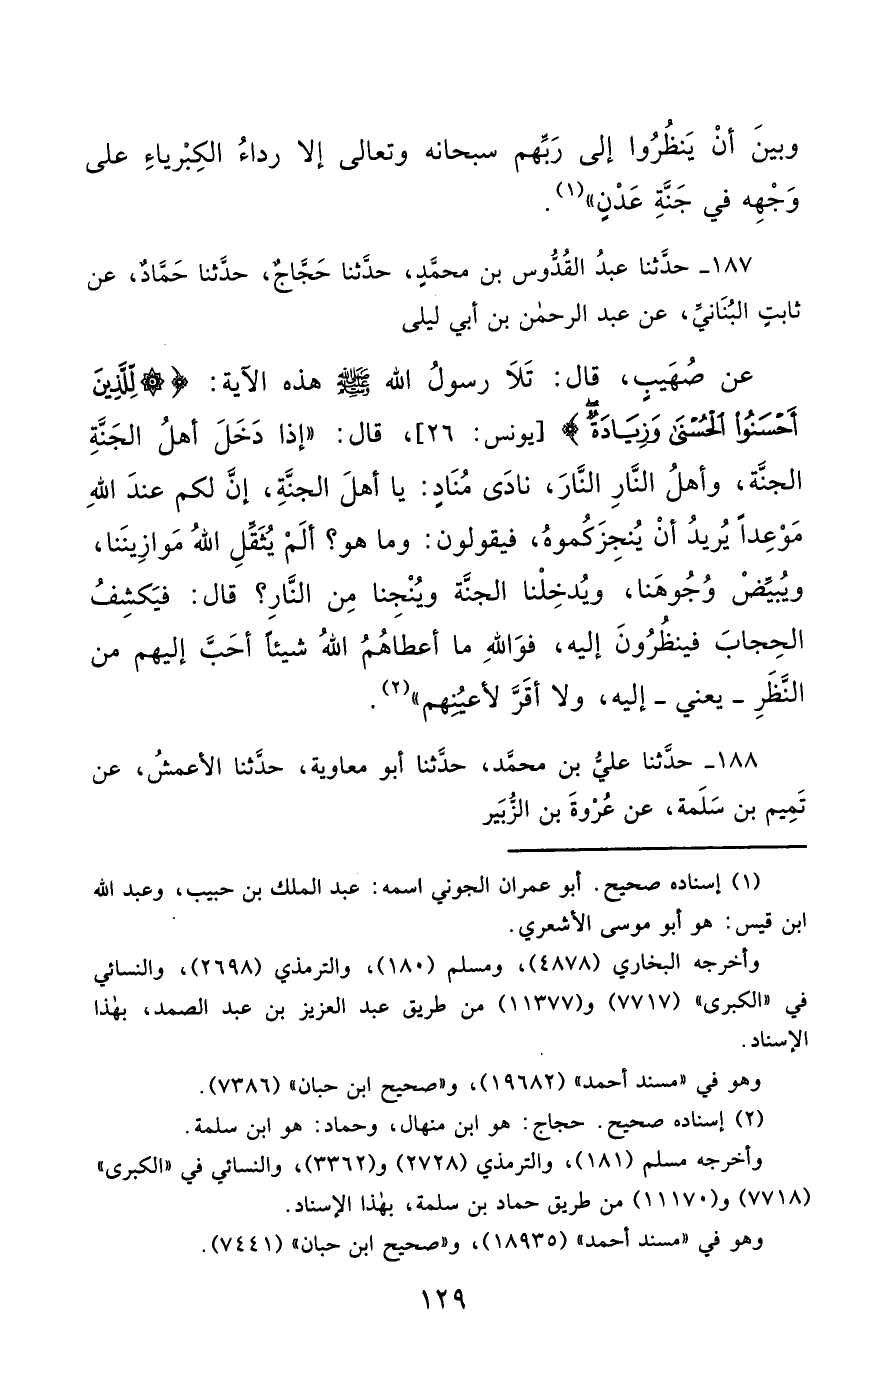 وبينَ أنْ يَنظُرُوا إلى رَبِّهم سبحانه وتعالى إلا رداءُ الكِبْرياءِ على
وَجْهِه في جَنَّةِ عَدْنٍ»(١).
١٨٧ـ حدَّثنا عبدُ القُدُّوس بن محمَّدٍ، حدَّثنا حَجَّاجٌ، حدَّثنا حَمَّادٌ، عن
ثابتٍ البُنَانيِّ، عن عبد الرحمٰن بن أبي ليلى
عن صُهَيبٍ، قال: تَلَا رسولُ الله ﷺ هذه الآية: ﴿ ۞ لِّلَّذِينَ
أَحْسَنُوا۟ ٱلْحُسْنَىٰ وَزِيَادَةٌۖ ﴾ [يونس: ٢٦]، قال: «إذا دَخَلَ أهلُ الجَنَّةِ
الجنَّة، وأهلُ النَّارِ النَّارَ، نادَى مُنَادٍ: يا أهلَ الجنَّةِ، إنَّ لكم عندَ اللهِ
مَوْعِداً يُريدُ أنْ يُنجِزَكُموهُ، فيقولون: وما هو؟ ألَمْ يُثَقِّلِ اللهُ مَوازِينَنا،
ويُبيِّضْ وُجُوهَنا، ويُدخِلْنا الجنَّة ويُنْجِنا مِن النَّارِ؟ قال: فيَكشِفُ
الحِجابَ فينظُرُونَ إليه، فوَاللهِ ما أعطاهُمُ اللهُ شيئاً أحَبَّ إليهم من
النَّظَرِ ـ يعني ـ إليه، ولا أقَرَّ لأعيُنِهم»(٢).
١٨٨ـ حدَّثنا عليُّ بن محمَّد، حدَّثنا أبو معاوية، حدَّثنا الأعمشُ، عن
تَمِيم بن سَلَمة، عن عُرْوةَ بن الزُّبَير
(١) إسناده صحيح. أبو عمران الجوني اسمه: عبد الملك بن حبيب، وعبد الله
ابن قيس: هو أبو موسى الأشعري.
وأخرجه البخاري (٤٨٧٨)، ومسلم (١٨٠)، والترمذي (٢٦٩٨)، والنسائي
في «الكبرى» (٧٧١٧) و(١١٣٧٧) من طريق عبد العزيز بن عبد الصمد، بهٰذا
الإسناد.
وهو في «مسند أحمد» (١٩٦٨٢)، و«صحيح ابن حبان» (٧٣٨٦).
(٢) إسناده صحيح. حجاج: هو ابن منهال، وحماد: هو ابن سلمة.
وأخرجه مسلم (١٨١)، والترمذي (٢٧٢٨) و(٣٣٦٢)، والنسائي في «الكبرى»
(٧٧١٨) و(١١١٧٠) من طريق حماد بن سلمة، بهٰذا الإسناد.
وهو في «مسند أحمد» (١٨٩٣٥)، و«صحيح ابن حبان» (٧٤٤١).
١٢٩